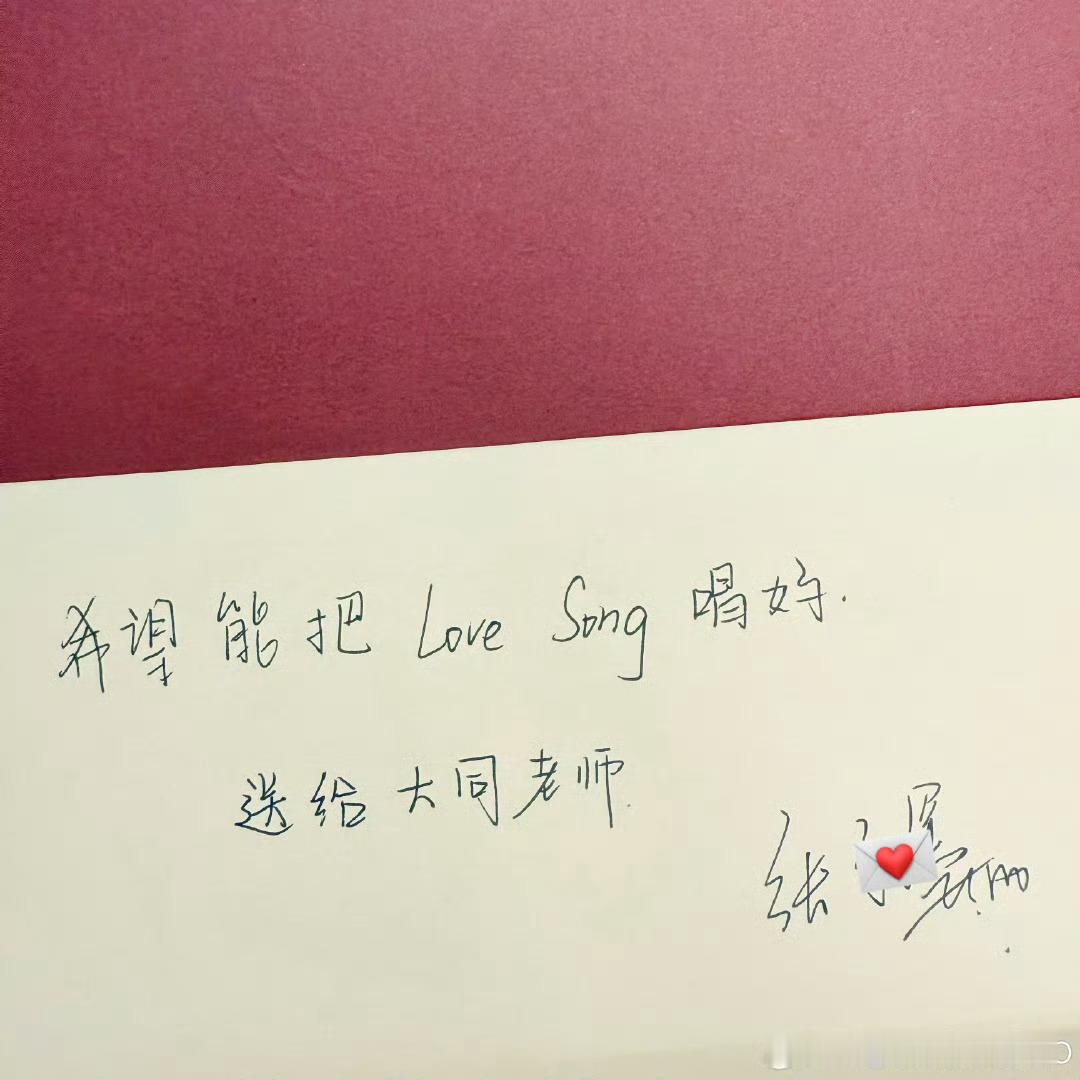 希望能把 Love Song 唱好.
送给大同老师.
张